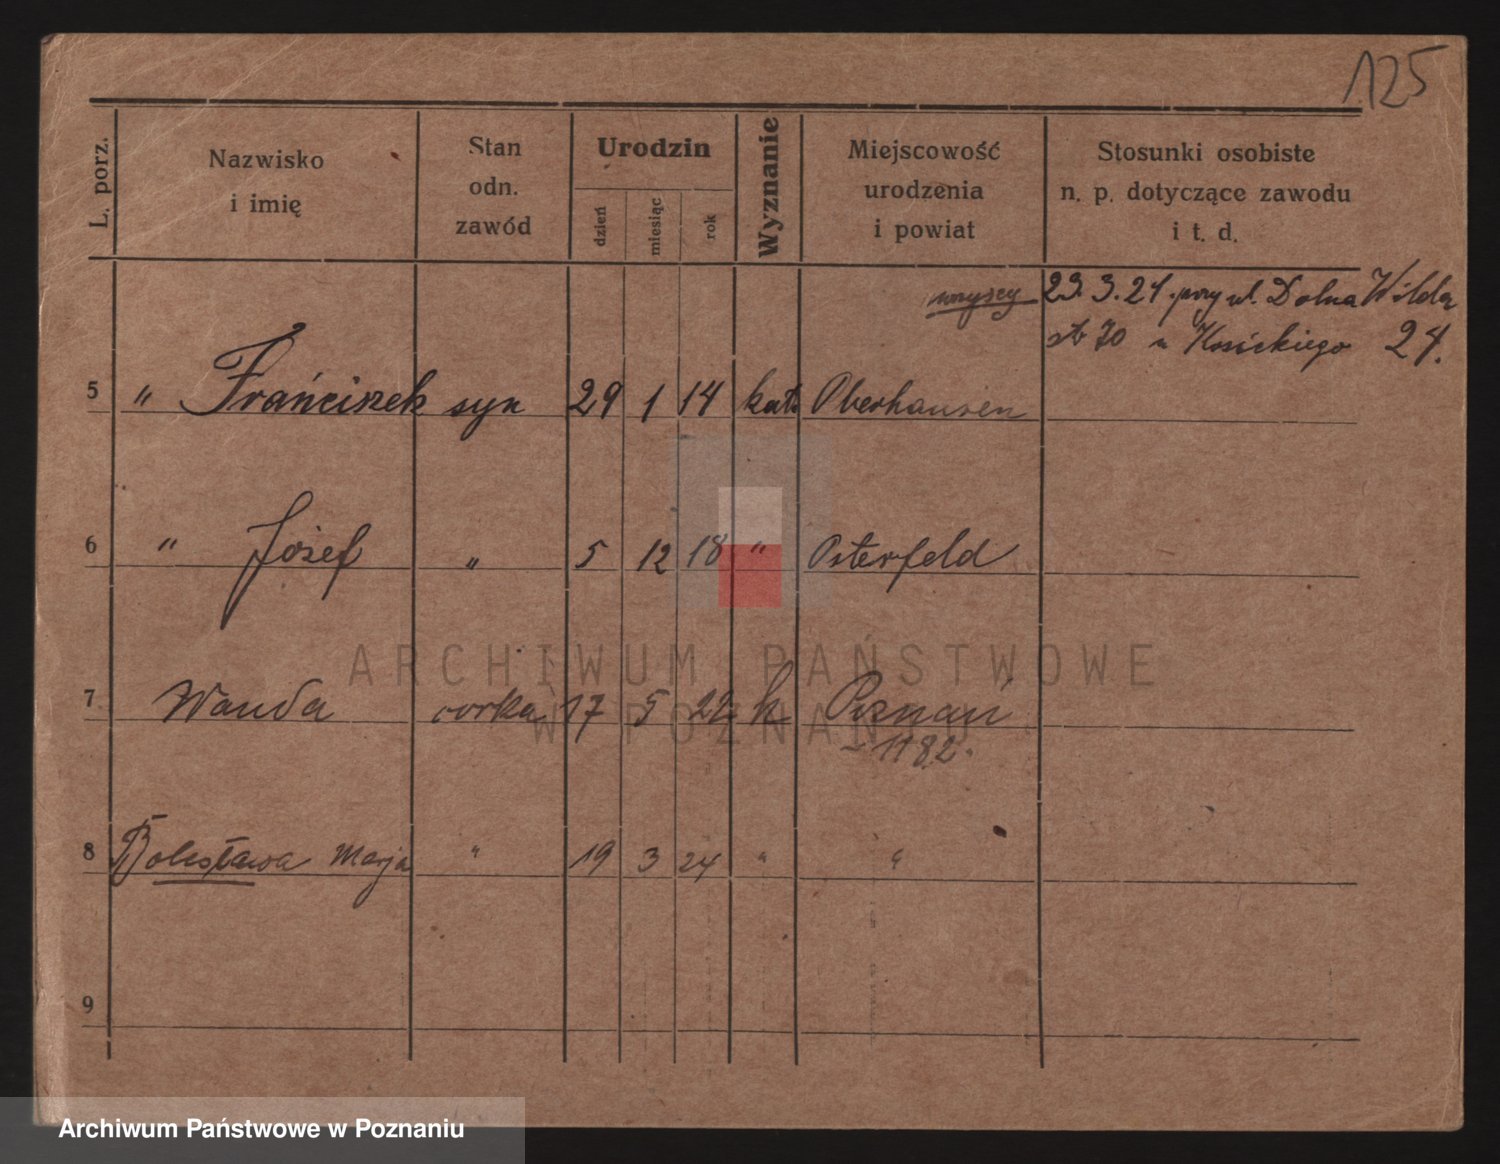 125
L. porz.
Nazwisko
i imię
Stan
odn.
zawód
Urodzin
dzień
miesiąc
rok
Wyznanie
Miejscowość
urodzenia
i powiat
Stosunki osobiste
n. p. dotyczące zawodu
i t. d.
wszyscy 23.3.21. przy ul. Dolna Wilda
70 u 24.
5 " Frańciszek syn 29 1 14 kat. Oberhausen
6 " Józef " 5 12 18 " Osterfeld
7 Wanda córka 17 5 22 k Poznań
1182.
8 Bolesława Marja " 19 3 24 " "
9
ARCHIWUM PAŃSTWOWE
W POZNANIU
Archiwum Państwowe w Poznaniu